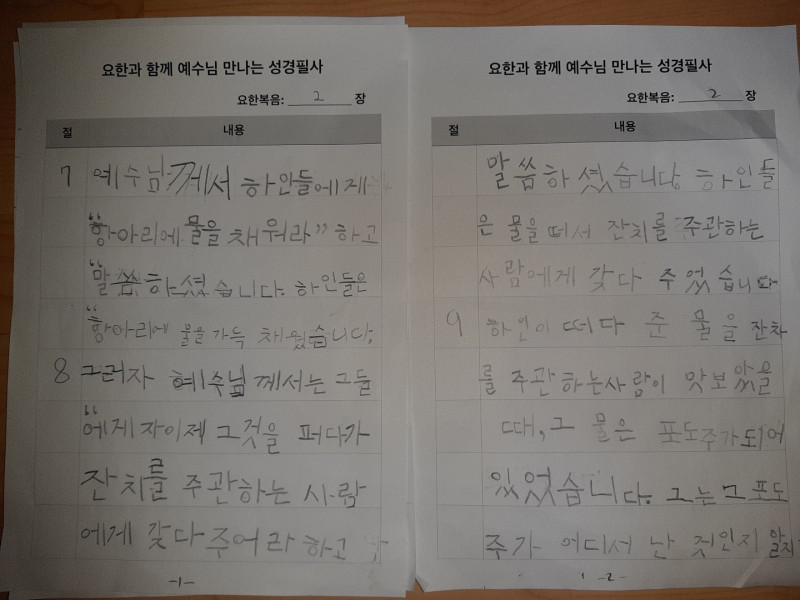 요한과 함께 예수님 만나는 성경필사
요한복음: 2 장
절 내용
7 예수님께서 하인들에게
"항아리에 물을 채워라" 하고
"말씀하셨습니다. 하인들은
"항아리에 물을 가득 채웠습니다.
8 그러자 예수님께서는 그들
"에게 자 이제 그것을 퍼다가
잔치를 주관하는 사람
에게 갖다 주어라 하고
-1-
요한과 함께 예수님 만나는 성경필사
요한복음: 2 장
절 내용
말씀하셨습니다. 하인들
은 물을 떠서 잔치를 주관하는
사람에게 갖다 주었습니다
9 하인이 떠다 준 물을 잔치
를 주관하는 사람이 맛보았을
때, 그 물은 포도주가 되어
있었습니다. 그는 그 포도
주가 어디서 난 것인지 알지
-2-